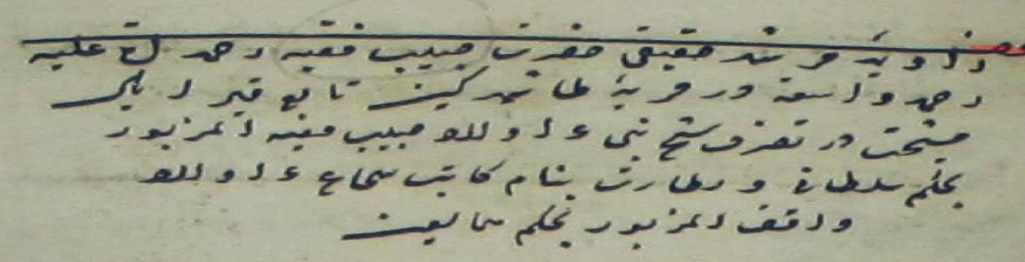 زاویه مرشد حقیقی حضرت حبیب فقیه رحمة الله علیه
رحمة واسعة در قریهٔ طاشدکین تابع قیر ایلی
مشیخت در تصرف شیخ نبی ع اولاد حبیب فقیه المزبور
بحکم سلطانی و نظارت بنام کاتب شجاع ع اولاد
واقف المزبور بحکم سابق